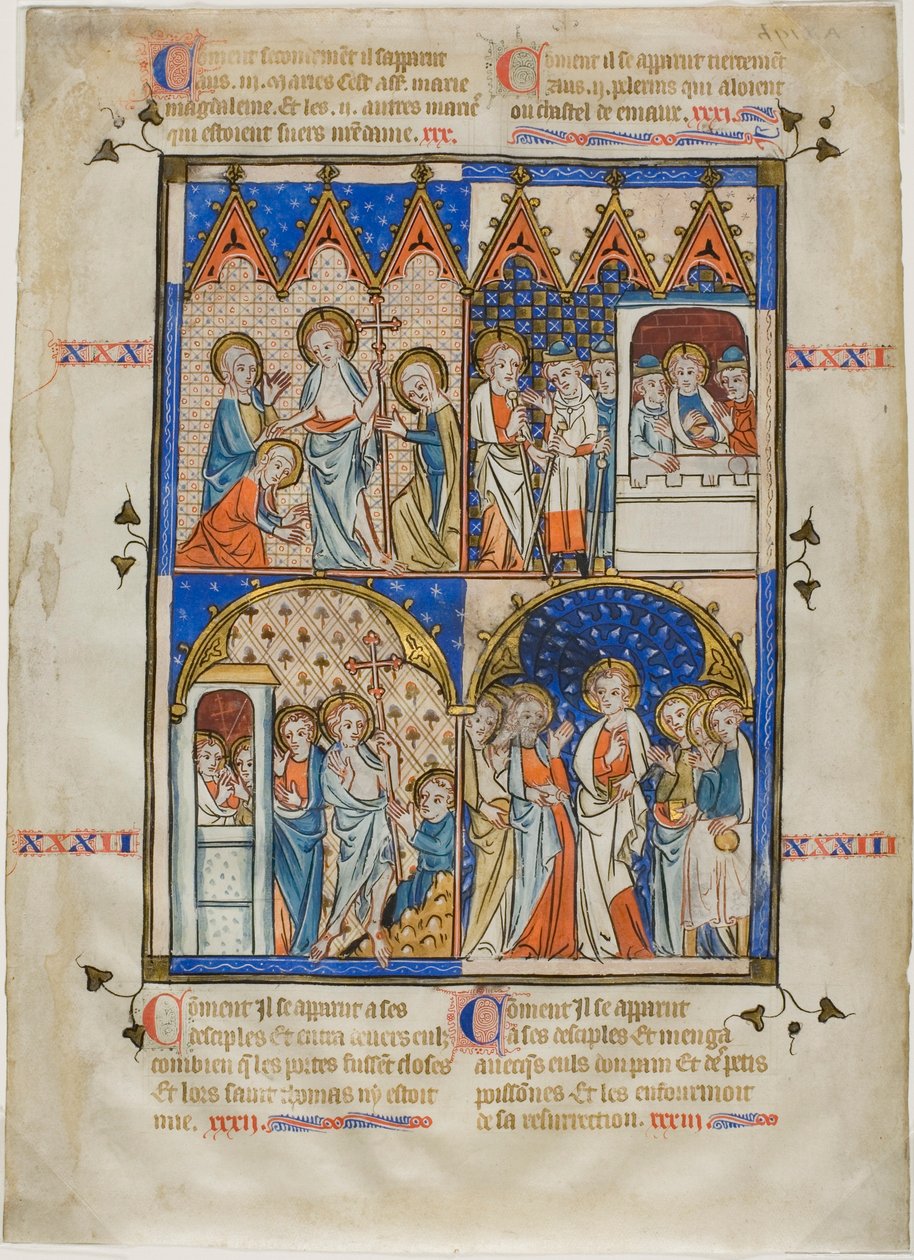 Coment secondemēt il sapparut
aus .iii. maries Cest asſ. marie
magdaleine. Et les .ii. autres mariēˢ
qui estoient suers nr̄e dame. xxx.
Coment il se apparut tiercemēt
aus .ij. pelerins qui aloient
ou chastel de emaux. xxxi.
XXX
XXXI
XXXII
XXXIII
Cōment Il se apparut a ses
desciples Et entra deuers eulz
combien q̄ les portes fussēt closes
Et lors saint thomas ny estoit
mie. xxxii.
Cōment Il se apparut
a ses desciples Et menga
auecq̄s euls du pain Et des petis
poissōnes Et les enfourmoit
de sa resurrection. xxxiii